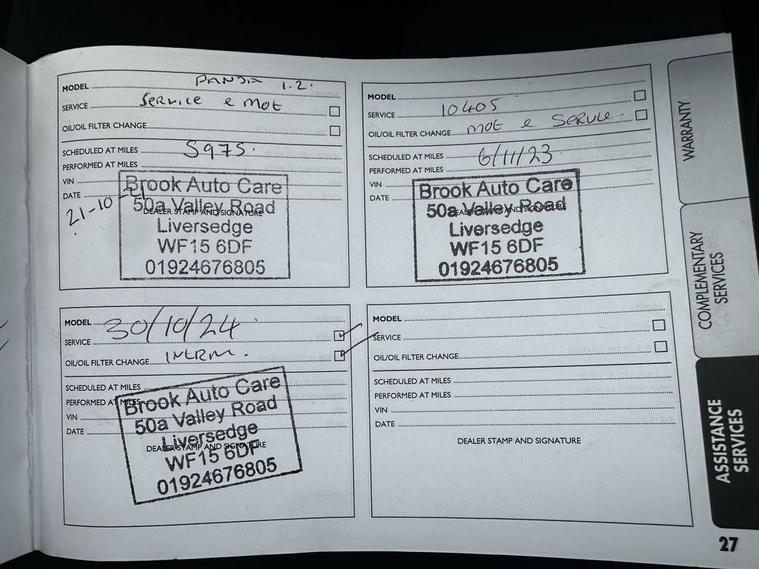 MODEL PANDA 1.2.
SERVICE Service & mot
OIL/OIL FILTER CHANGE
SCHEDULED AT MILES 5975.
PERFORMED AT MILES
VIN
DATE 21-10-
DEALER STAMP AND SIGNATURE
Brook Auto Care
50a Valley Road
Liversedge
WF15 6DF
01924676805
MODEL
SERVICE 10405
OIL/OIL FILTER CHANGE mot & Service
SCHEDULED AT MILES 6/11/23
PERFORMED AT MILES
VIN
DATE
DEALER STAMP AND SIGNATURE
Brook Auto Care
50a Valley Road
Liversedge
WF15 6DF
01924676805
MODEL 30/10/24
SERVICE
OIL/OIL FILTER CHANGE
SCHEDULED AT MILES
PERFORMED AT MILES
VIN
DATE
DEALER STAMP AND SIGNATURE
Brook Auto Care
50a Valley Road
Liversedge
WF15 6DF
01924676805
MODEL
SERVICE
OIL/OIL FILTER CHANGE
SCHEDULED AT MILES
PERFORMED AT MILES
VIN
DATE
DEALER STAMP AND SIGNATURE
WARRANTY
COMPLEMENTARY
SERVICES
ASSISTANCE
SERVICES
27